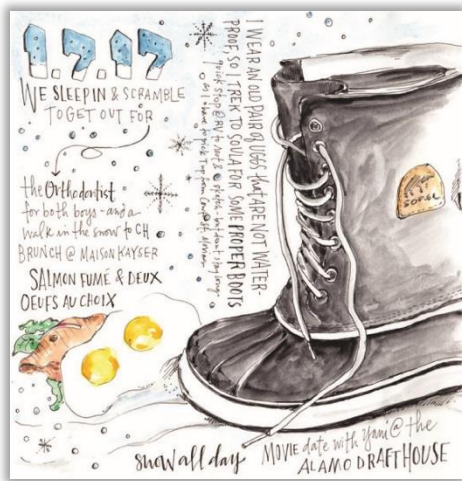 1.7.17
WE SLEEP IN & SCRAMBLE
TO GET OUT FOR
the Orthodontist
for both boys - and a
walk in the snow to CH
BRUNCH @ MAISON KAYSER
SALMON FUMÉ & DEUX
OEUFS AU CHOIX
I WEAR AN OLD PAIR of UGGS that ARE NOT WATER-
PROOF, SO I TREK TO SOULA FOR SOME PROPER BOOTS
quick stop @ RV to &
as I have to pick T up from
SOREL
snow all day
MOVIE date with Yani @ the
ALAMO DRAFTHOUSE